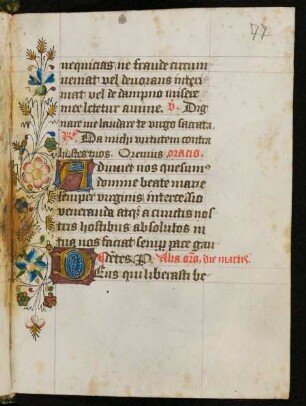 77
nequicias ne fraude circum
ueniat vel deuorans inteci
mat vel de dampno misere
mee letetur anime. v. Dig
nare me laudare te uirgo sacrata.
R. Da michi virtutem contra
hostes tuos. Oremus oratio.
Adiuuet nos quesum⁹
domine beate marie
semper virginis intercessio
veneranda atqꝫ a cunctis nos
tris hostibus absolutos in
tua nos faciat semper pace gau
dētes. P. Alia oro, die martis.
Deus qui liberasti be